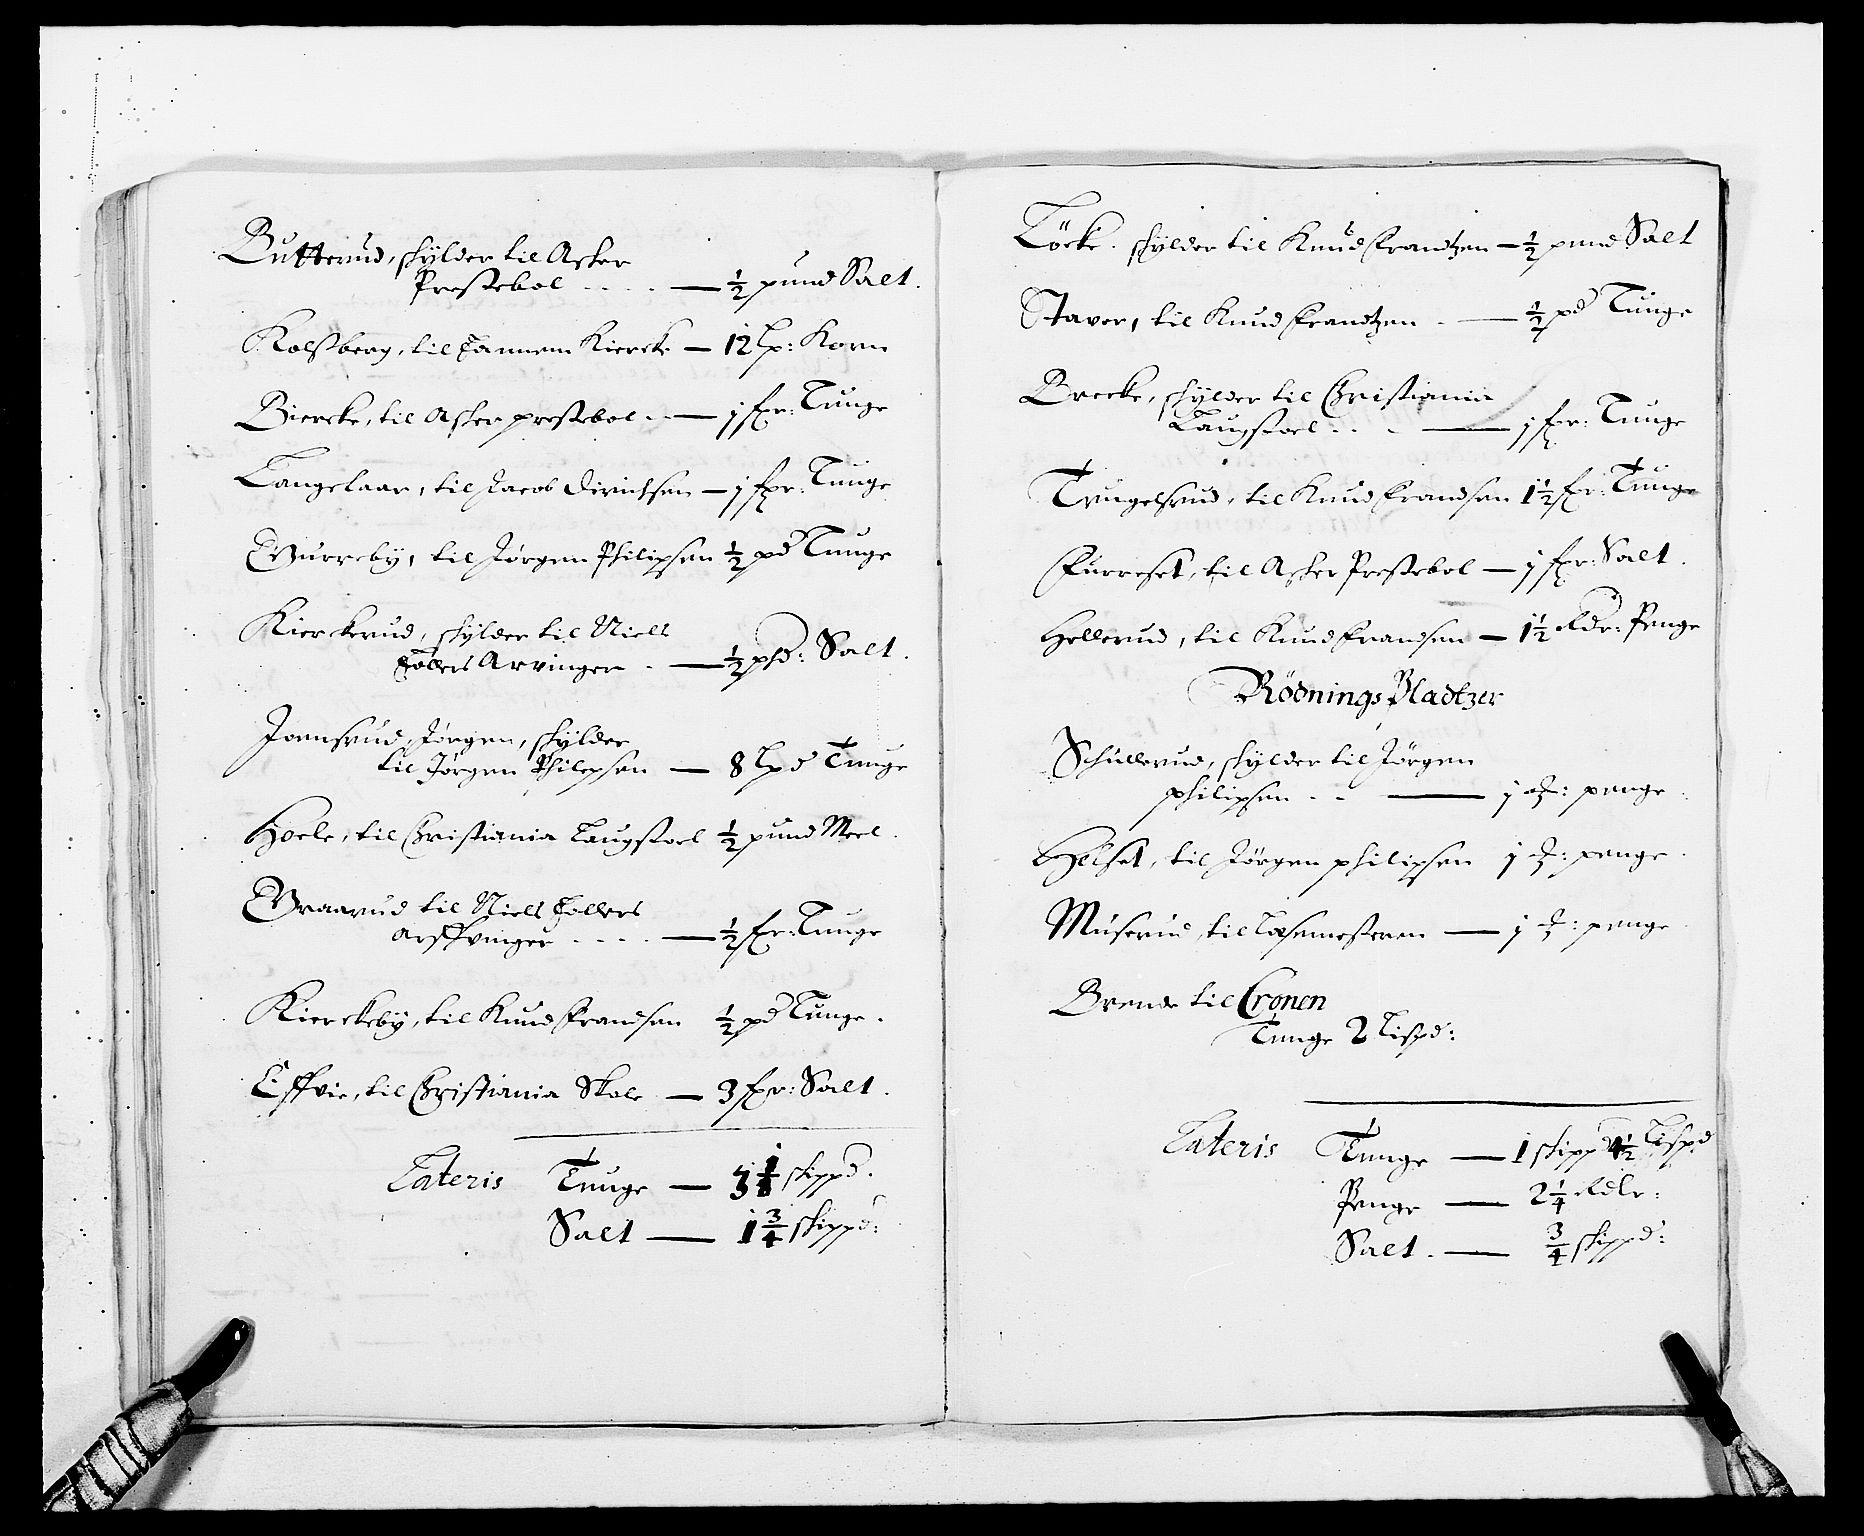 Butterud, skylder til Asker
Prestebol - - - - — ½ pund Salt.
Kolsberg, til Tannem Kiercke — 12 lp: Korn
Biercke, til Asker prestebol - - — j fpr: Tunge
Langelaar, til Jacob Dirichsen — j fpr: Tunge
Gurreby, til Jørgen Philipsen ½ pd Tunge
Kierckerud, skylder til Niells
Tollers Arvinger - — ½ pd: Salt.
Joensrud, Jørgen, skylder
til Jørgen Philipsen — 8 lpd Tunge
Hoele, til Christiania Laugstoel ½ pund Meel.
Graarud til Niels Tollers
arffvinger - - - - — ½ fpr: Tunge
Kierckeby, til Knud Frandsen ½ pd Tunge.
Effvie, til Christiania Skole — 3 fpr: Salt.
Lateris Tunge — 3 ⅛ skippd.
Salt — 1 ¾ skippd:
Löcke. skylder til Knud Frandtzen — ½ pund Salt
Staver, til Knud Frandtzen - — ½ pd Tunge
Brecke, skylder til Christiania
Laugstoel - - - — j fpr: Tunge
Trugelsrud, til Knud Frandsen 1½ fpr: Tunge
Furreset, til Asker Prestebol — j fpr: Salt.
Hellerud, til Knud Frandsen — 1½ Rdr: Penge
Rödnings Pladtzer
Schullerud, skylder til Jörgen
philipsen - - — j ort: penge.
Helset, til Jörgen philipsen j ort: penge.
Muserud, til Læsemesteren — j ort: penge.
Brende til Cronen
Tunge 2 Lispd:
Lateris Tunge — 1 skippd 4½ Lispd
Penge — 2 ¼ Rdlr:
Salt. — ¾ skippd: